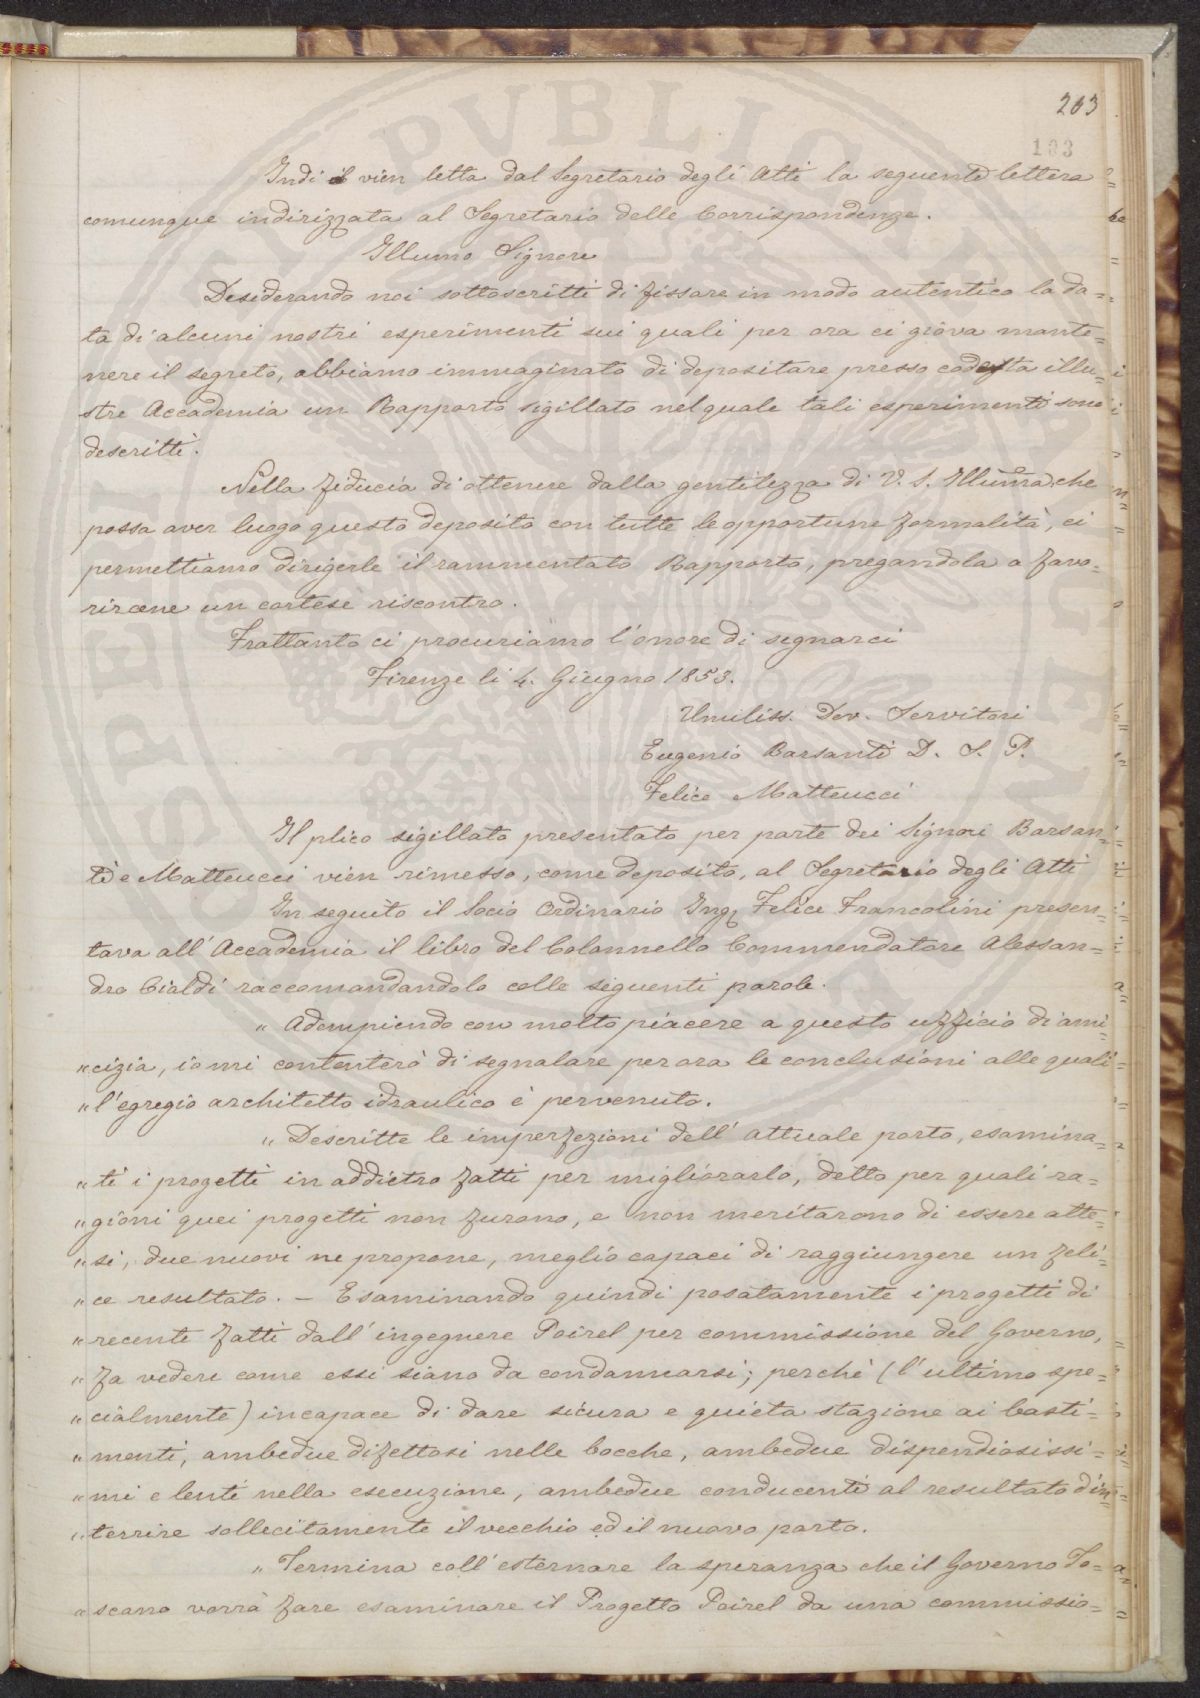 203
103
Indi il vien letta dal Segretario degli Atti la seguente lettera
comunque indirizzata al Segretario delle Corrispondenze.
Illumo Signore
Desiderando noi sottoscritti di fissare in modo autentico la da=
ta di alcuni nostri esperimenti sui quali per ora ci giova mante=
nere il segreto, abbiamo immaginato di depositare presso codesta illu=
stre Accademia un Rapporto sigillato nel quale tali esperimenti sono
descritti.
Nella fiducia di ottenere dalla gentilezza di V. S. Illuma che
possa aver luogo questo deposito con tutte le opportune formalità, ci
permettiamo dirigerle il rammentato Rapporto, pregandola a favo=
rircene un cortese riscontro.
Frattanto ci procuriamo l'onore di segnarci
Firenze li 4. Giugno 1853.
Umiliss. Dev. Servitori
Eugenio Barsanti D. S. P.
Felice Matteucci
Il plico sigillato presentato per parte dei Signori Barsan=
ti e Matteucci vien rimesso, come deposito, al Segretario degli Atti
In seguito il Socio Ordinario Ing Felice Francolini presen=
tava all'Accademia il libro del Colonnello Commendatore Alessan=
dro Cialdi raccomandandolo colle seguenti parole.
" Adempiendo con molto piacere a questo ufficio di ami
" cizia, io mi contenterò di segnalare per ora le conclusioni alle quali
" l'egregio architetto idraulico è pervenuto.
" Descritte le imperfezioni dell' attuale porto, esamina=
" ti i progetti in addietro fatti per migliorarlo, detto per quali ra=
" gioni quei progetti non furono, e non meritarono di essere atte=
" si, due nuovi ne propone, meglio capaci di raggiungere un feli=
" ce resultato. — Esaminando quindi posatamente i progetti di
" recente fatti dall'ingegnere Poirel per commissione del Governo,
" fa vedere come essi siano da condannarsi; perchè (l'ultimo spe=
" cialmente) incapace di dare sicura e quieta stazione ai basti=
" menti, ambedue difettosi nelle bocche, ambedue dispendiosissi=
" mi e lenti nella esecuzione, ambedue conducenti al resultato d'in=
" terrire sollecitamente il vecchio ed il nuovo porto.
" Termina coll'esternare la speranza che il Governo To=
" scano vorrà fare esaminare il Progetto Poirel da una commissio=